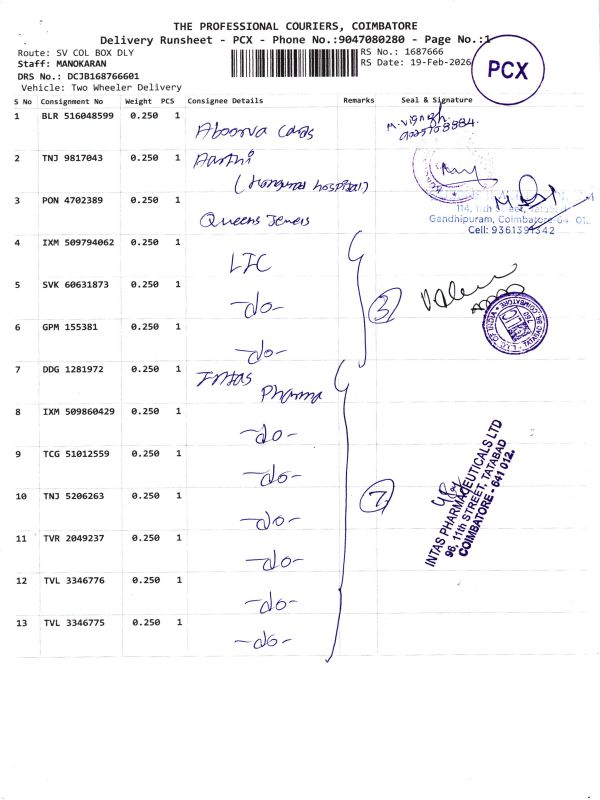 THE PROFESSIONAL COURIERS, COIMBATORE
Delivery Runsheet - PCX - Phone No.:9047080280 - Page No.:1
Route: SV COL BOX DLY
RS No.: 1687666
Staff: MANOKARAN
RS Date: 19-Feb-2026
DRS No.: DCJB168766601
Vehicle: Two Wheeler Delivery
PCX
S No Consignment No Weight PCS Consignee Details Remarks Seal & Signature
1 BLR 516048599 0.250 1 Aboorva Cards
2 TNJ 9817043 0.250 1 Aarthi
( hospital)
3 PON 4702389 0.250 1 Queens
114, 11th Street,
Gandhipuram, Coimbatore-64 012
Cell: 9361391342
4 IXM 509794062 0.250 1 LIC
5 SVK 60631873 0.250 1 -do-
3
6 GPM 155381 0.250 1 -do-
7 DDG 1281972 0.250 1 Intas Pharma
8 IXM 509860429 0.250 1 -do-
9 TCG 51012559 0.250 1 -do-
10 TNJ 5206263 0.250 1 -do-
7
INTAS PHARMACEUTICALS LTD
96, 11th STREET, TATABAD
COIMBATORE - 641 012.
11 TVR 2049237 0.250 1 -do-
12 TVL 3346776 0.250 1 -do-
13 TVL 3346775 0.250 1 -do-